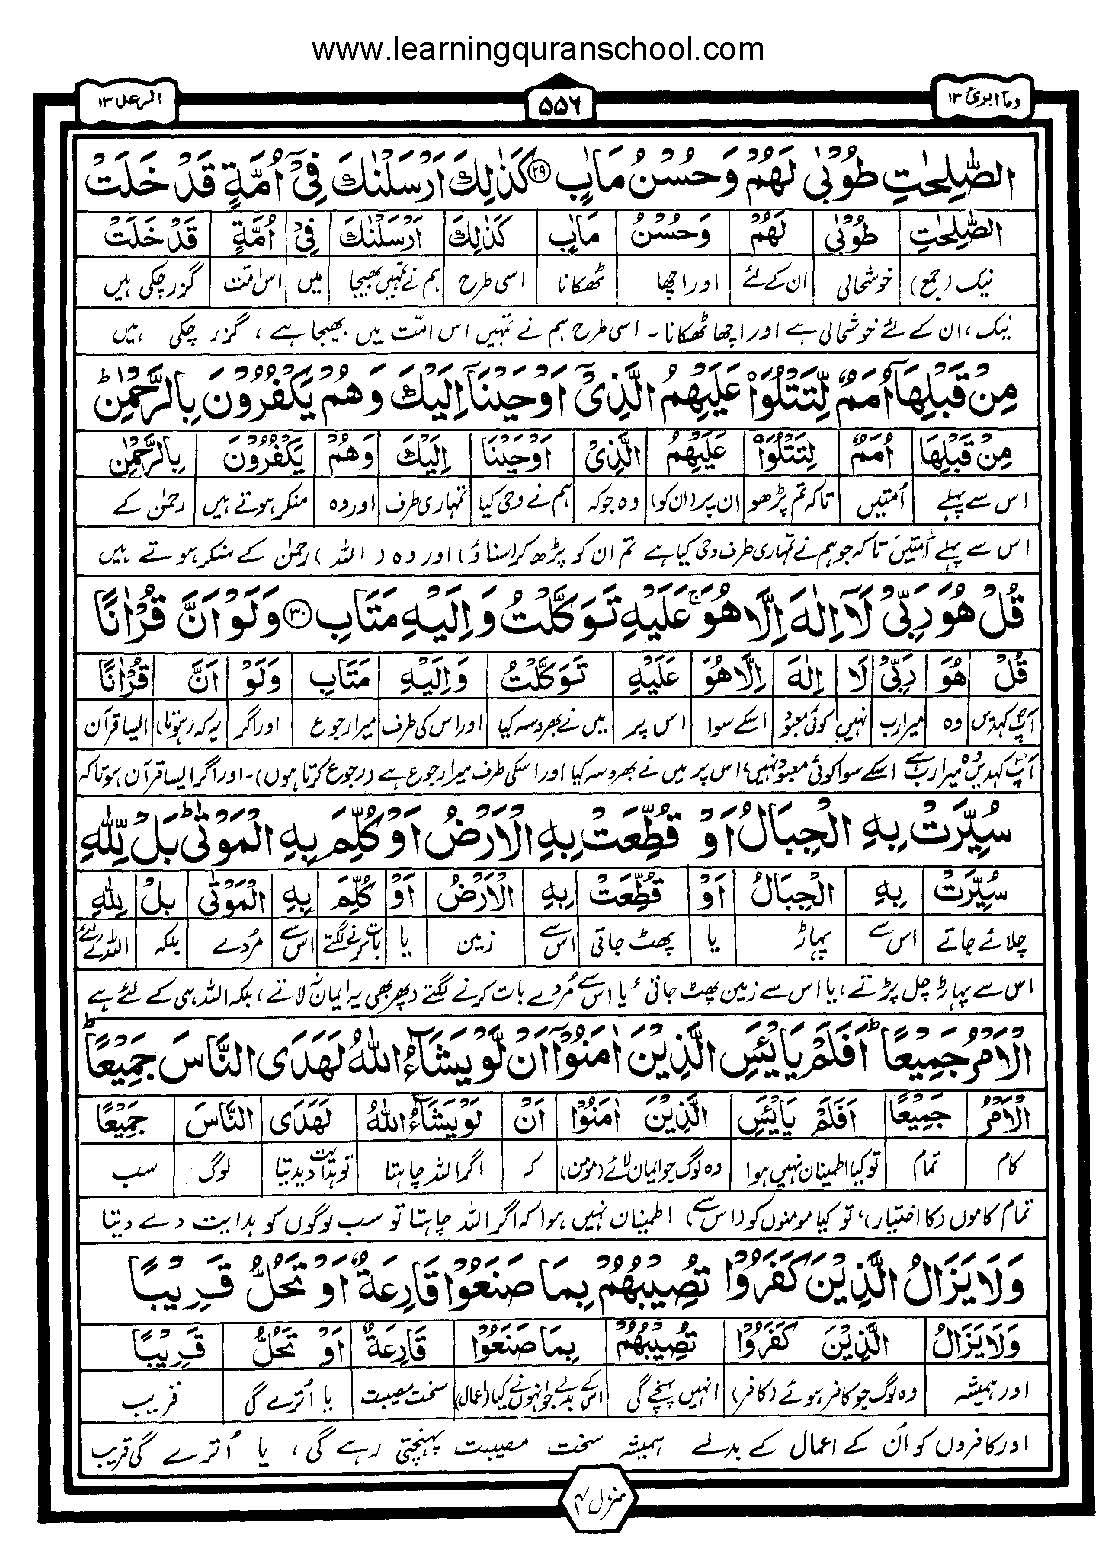 www.learningquranschool.com
وما ابرئ ۱۳
۵۵۶
الرعد ۱۳
الصّٰلِحٰتِ طُوْبٰى لَهُمْ وَحُسْنُ مَاٰبٍ ﴿۲۹﴾ كَذٰلِكَ اَرْسَلْنٰكَ فِىْٓ اُمَّةٍ قَدْ خَلَتْ
الصّٰلِحٰتِ طُوْبٰى لَهُمْ وَحُسْنُ مَاٰبٍ كَذٰلِكَ اَرْسَلْنٰكَ فِىْٓ اُمَّةٍ قَدْ خَلَتْ
نیک (جمع) خوشحالی ان کے لئے اور اچھا ٹھکانا اسی طرح ہم نے تمہیں بھیجا میں اس امت گزر چکی ہیں
نیک، ان کے لئے خوشحالی ہے اور اچھا ٹھکانا۔ اسی طرح ہم نے تمہیں اس امّت میں بھیجا ہے، گزر چکی ہیں
مِنْ قَبْلِهَآ اُمَمٌ لِّتَتْلُوَا۟ عَلَيْهِمُ الَّذِىْٓ اَوْحَيْنَآ اِلَيْكَ وَهُمْ يَكْفُرُوْنَ بِالرَّحْمٰنِ ؕ
مِنْ قَبْلِهَا اُمَمٌ لِتَتْلُوَا۟ عَلَيْهِمُ الَّذِىْٓ اَوْحَيْنَا اِلَيْكَ وَهُمْ يَكْفُرُوْنَ بِالرَّحْمٰنِ
اس سے پہلے اُمتیں تاکہ تم پڑھو ان پر (ان کو) وہ جو کہ ہم نے وحی کیا تمہاری طرف اور وہ منکر ہوتے ہیں رحمٰن کے
اس سے پہلے اُمتیں تاکہ جو ہم نے تمہاری طرف وحی کیا ہے تم ان کو پڑھ کر سناؤ اور وہ (اللہ) رحمٰن کے منکر ہوتے ہیں
قُلْ هُوَ رَبِّىْ لَآ اِلٰهَ اِلَّا هُوَ ۚ عَلَيْهِ تَوَكَّلْتُ وَاِلَيْهِ مَتَابِ ﴿۳۰﴾ وَلَوْ اَنَّ قُرْاٰنًا
قُلْ هُوَ رَبِّىْ لَا اِلٰهَ اِلَّا هُوَ عَلَيْهِ تَوَكَّلْتُ وَاِلَيْهِ مَتَابِ وَلَوْ اَنَّ قُرْاٰنًا
آپ کہدیں وہ میرا رب نہیں کوئی معبود اسکے سوا اس پر میں نے بھروسہ کیا اور اس کی طرف میرا رجوع اور اگر یہ کہ (ہوتا) ایسا قرآن
آپ کہدیں وہ میرا رب ہے اسکے سوا کوئی معبود نہیں، اس پر میں نے بھروسہ کیا اور اسکی طرف میرا رجوع ہے (رجوع کرتا ہوں)۔ اور اگر ایسا قرآن ہوتا کہ
سُيِّرَتْ بِهِ الْجِبَالُ اَوْ قُطِّعَتْ بِهِ الْاَرْضُ اَوْ كُلِّمَ بِهِ الْمَوْتٰى ؕ بَلْ لِّلّٰهِ
سُيِّرَتْ بِهِ الْجِبَالُ اَوْ قُطِّعَتْ بِهِ الْاَرْضُ اَوْ كُلِّمَ بِهِ الْمَوْتٰى بَلْ لِلّٰهِ
چلائے جاتے اس سے پہاڑ یا پھٹ جاتی اس سے زمین یا بات کرنے لگتے اس سے مُردے بلکہ اللہ کے لئے
اس سے پہاڑ چل پڑتے، یا اس سے زمین پھٹ جاتی، یا اس سے مُردے بات کرنے لگتے (پھر بھی یہ ایمان نہ لاتے)، بلکہ اللہ ہی کے لئے ہے
الْاَمْرُ جَمِيْعًا ؕ اَفَلَمْ يَايْــَٔسِ الَّذِيْنَ اٰمَنُوْٓا اَنْ لَّوْ يَشَآءُ اللّٰهُ لَهَدَى النَّاسَ جَمِيْعًا ؕ
الْاَمْرُ جَمِيْعًا اَفَلَمْ يَايْــَٔسِ الَّذِيْنَ اٰمَنُوْٓا اَنْ لَوْ يَشَآءُ اللّٰهُ لَهَدَى النَّاسَ جَمِيْعًا
کام تمام تو کیا اطمینان نہیں ہوا وہ لوگ جو ایمان لائے (مومن) کہ اگر اللہ چاہتا تو ہدایت دیدیتا لوگ سب
تمام کاموں (کا اختیار)، تو کیا مومنوں کو (اس سے) اطمینان نہیں ہوا کہ اگر اللہ چاہتا تو سب لوگوں کو ہدایت دے دیتا
وَلَا يَزَالُ الَّذِيْنَ كَفَرُوْا تُصِيْبُهُمْ بِمَا صَنَعُوْا قَارِعَةٌ اَوْ تَحُلُّ قَرِيْبًا
وَلَا يَزَالُ الَّذِيْنَ كَفَرُوْا تُصِيْبُهُمْ بِمَا صَنَعُوْا قَارِعَةٌ اَوْ تَحُلُّ قَرِيْبًا
اور ہمیشہ وہ لوگ جو کافر ہوئے (کافر) انہیں پہنچے گی اس کے بدلے جو انہوں نے کیا (اعمال) سخت مصیبت یا اُترے گی قریب
اور کافروں کو اُن کے اعمال کے بدلے ہمیشہ سخت مصیبت پہنچتی رہے گی، یا اُترے گی قریب
منزل ۳